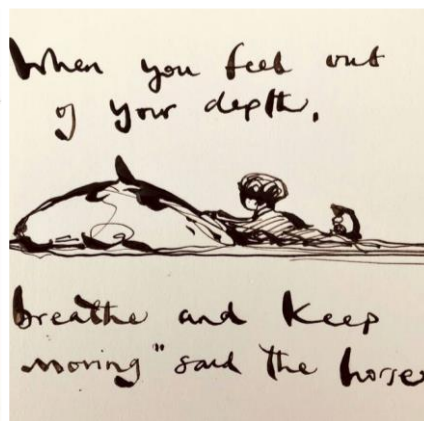 When you feel out
of your depth,
breathe and keep
moving" said the horse